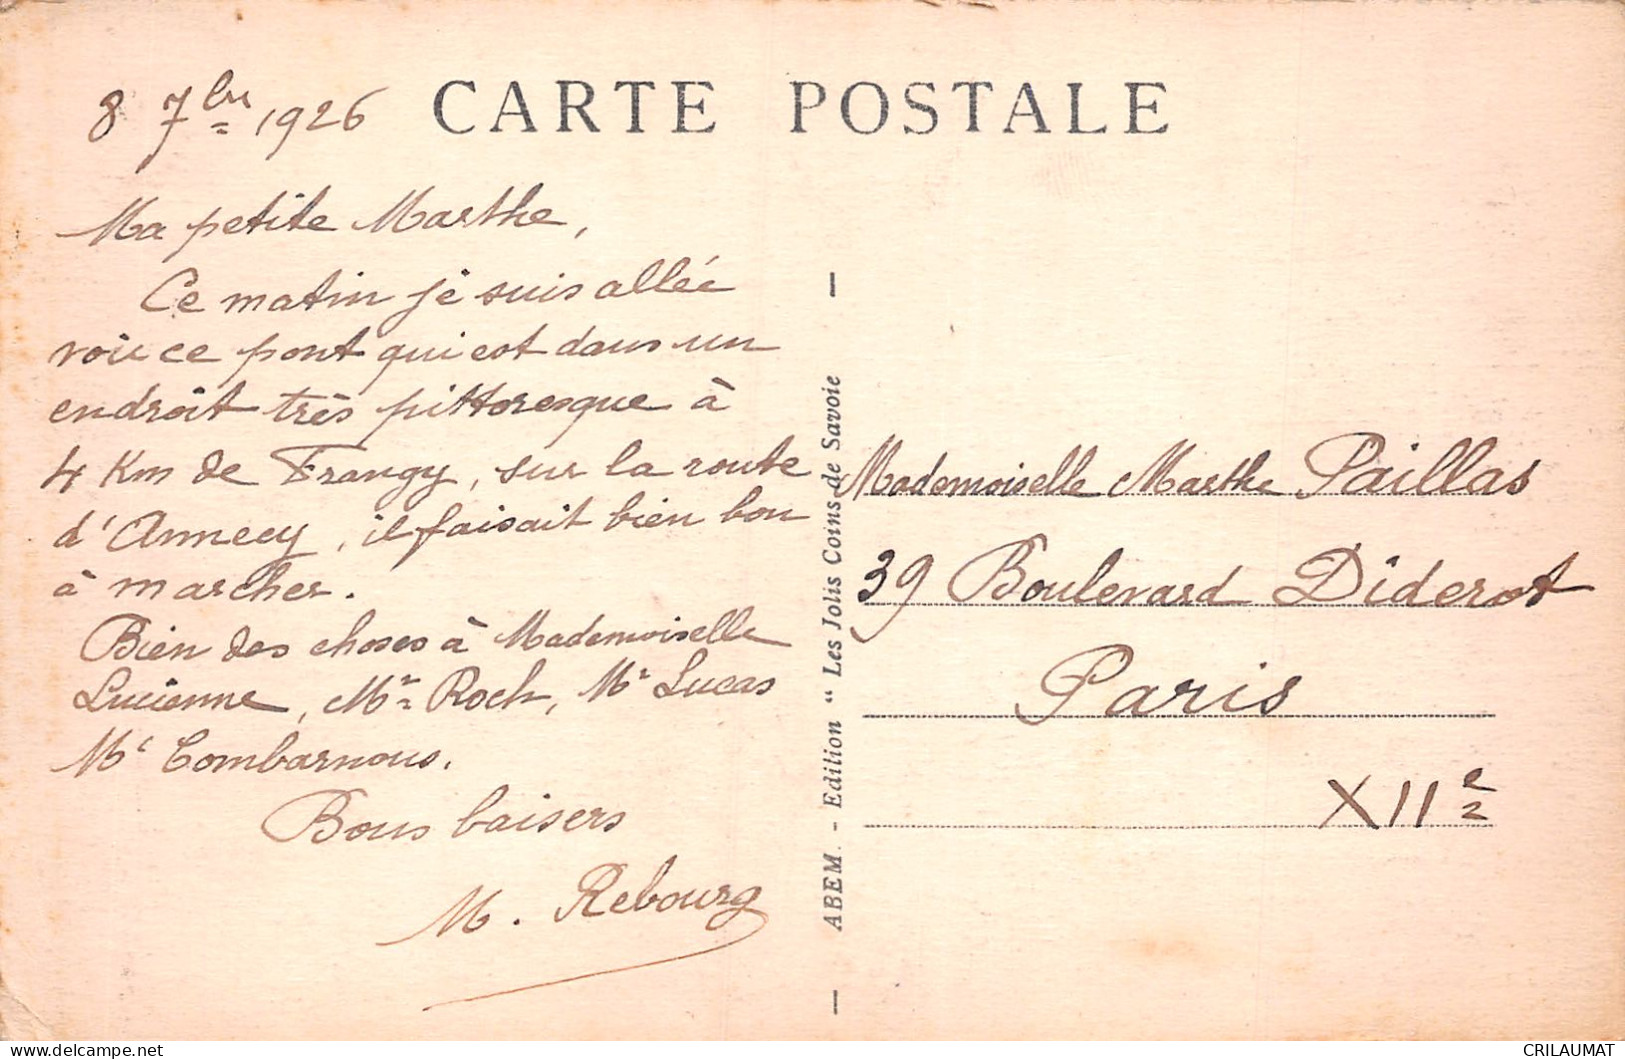 CARTE POSTALE
8 7bre 1926
Ma petite Marthe,
Ce matin je suis allée
voir ce pont qui est dans un
endroit très pittoresque à
4 Km de Frangy, sur la route
d'Annecy, il faisait bien bon
à marcher.
Bien des choses à Mademoiselle
Lucienne, Mr Roch, Mr Lucas
Mr Combarnous.
Bons baisers
M. Rebourg
ABEM. - Edition "Les Jolis Coins de Savoie
Mademoiselle Marthe Paillas
39 Boulevard Diderot
Paris
XIIe
CRILAUMAT